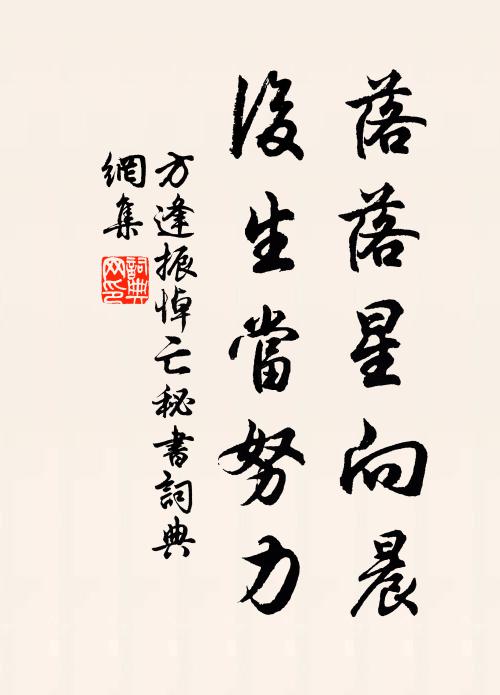 落落星向晨
後生當努力
方逢振悼亡秘書詞典
網集
詞典
网印